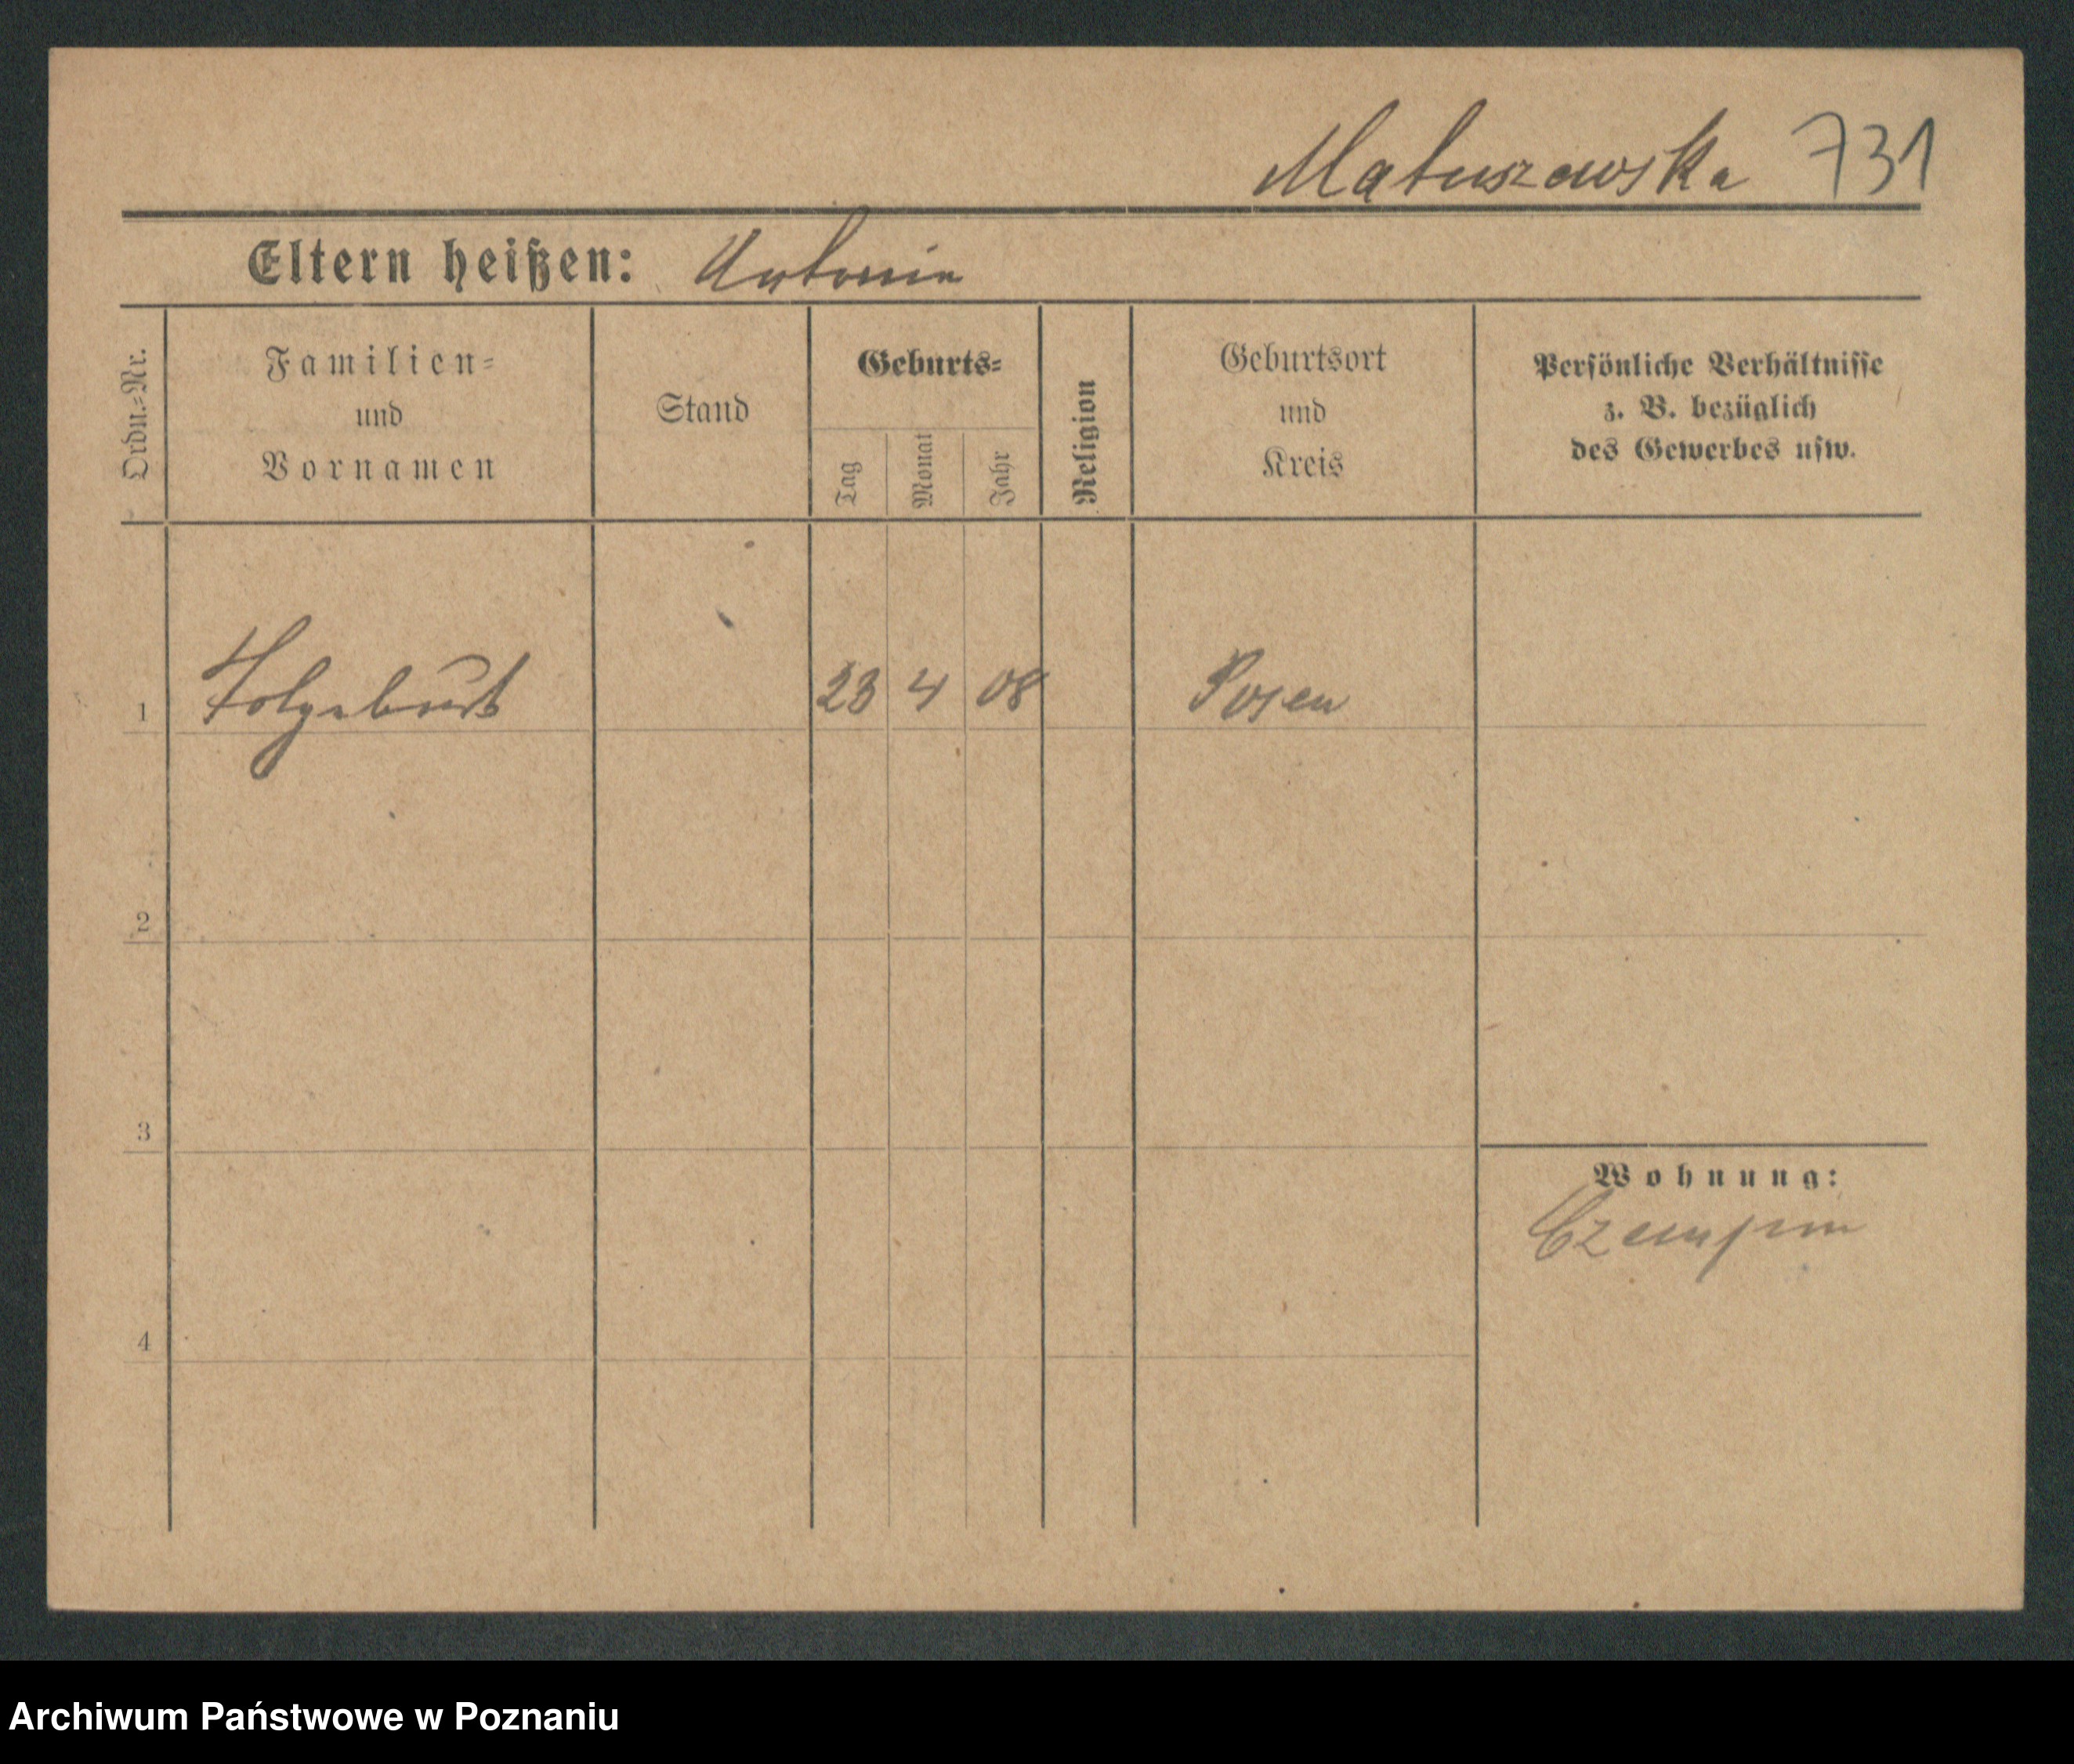 Matuszewska 731
Eltern heißen: Antonin
Ordn.=Nr.
Familien=
und
Vornamen
Stand
Geburts=
Tag
Monat
Jahr
Religion
Geburtsort
und
Kreis
Persönliche Verhältnisse
z. B. bezüglich
des Gewerbes usw.
1 23 4 08 Posen
2
3
Wohnung:
Czempin
4
Archiwum Państwowe w Poznaniu